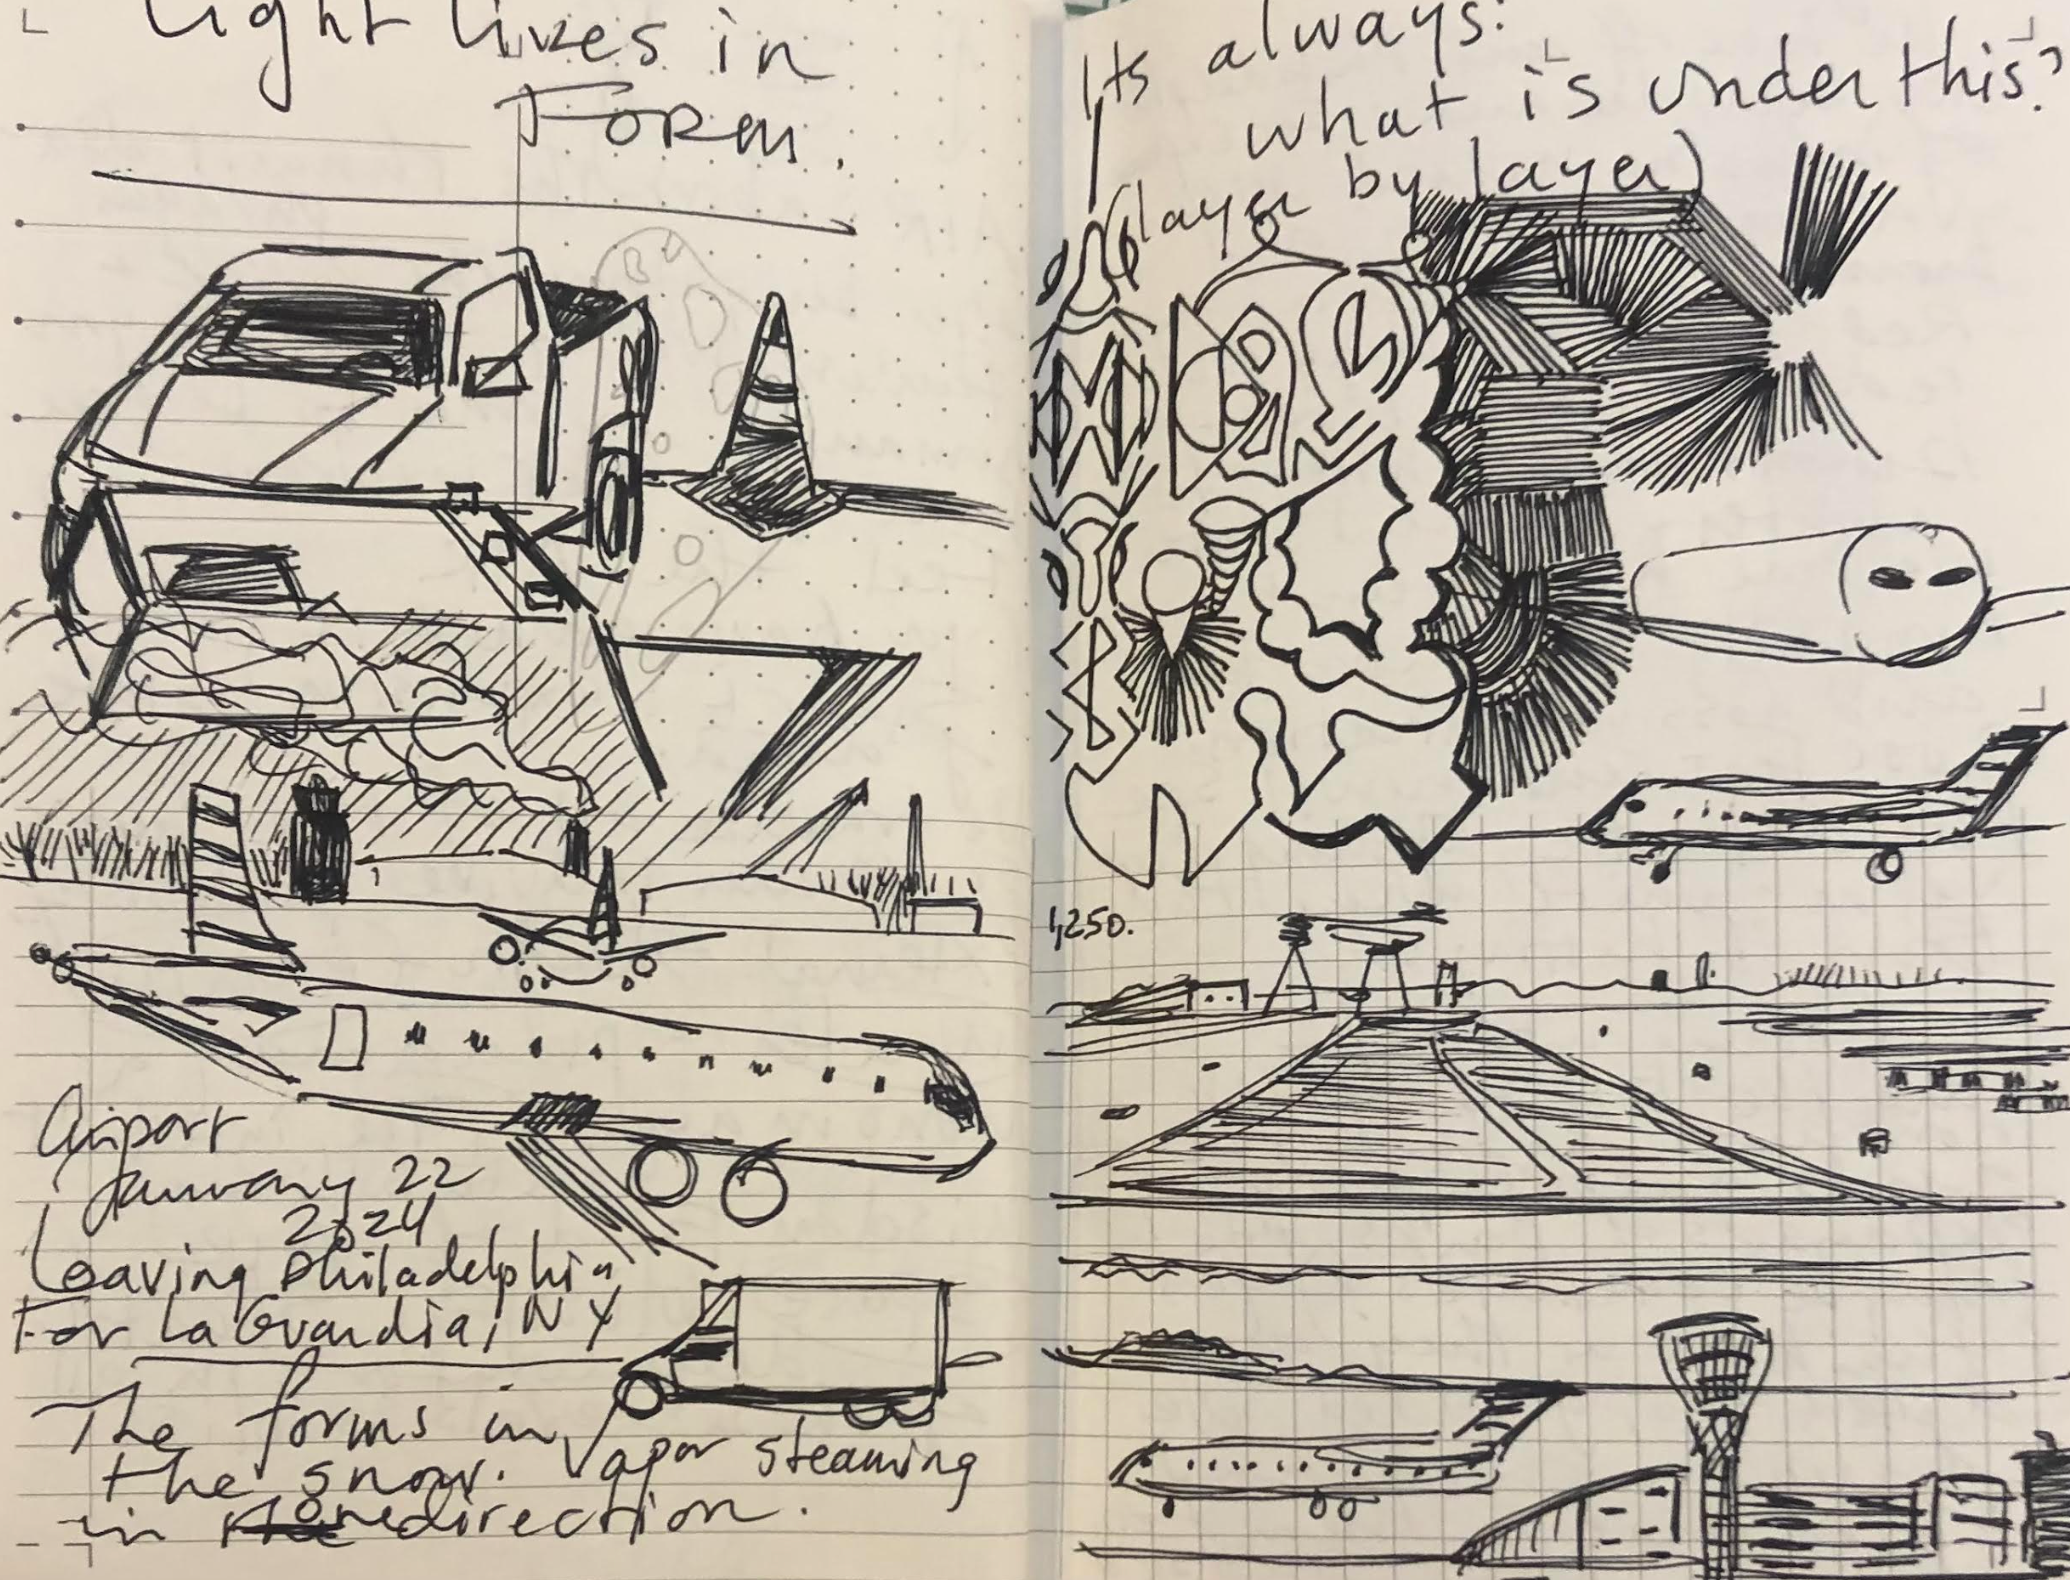 Light lives in
Form.
Airport
January 22
2024
Leaving Philadelphia
For LaGuardia, NY
The forms in
the snow. Vapor steaming
in onedirection.
Its always:
what is under this?
(layer by layer)
1,250.